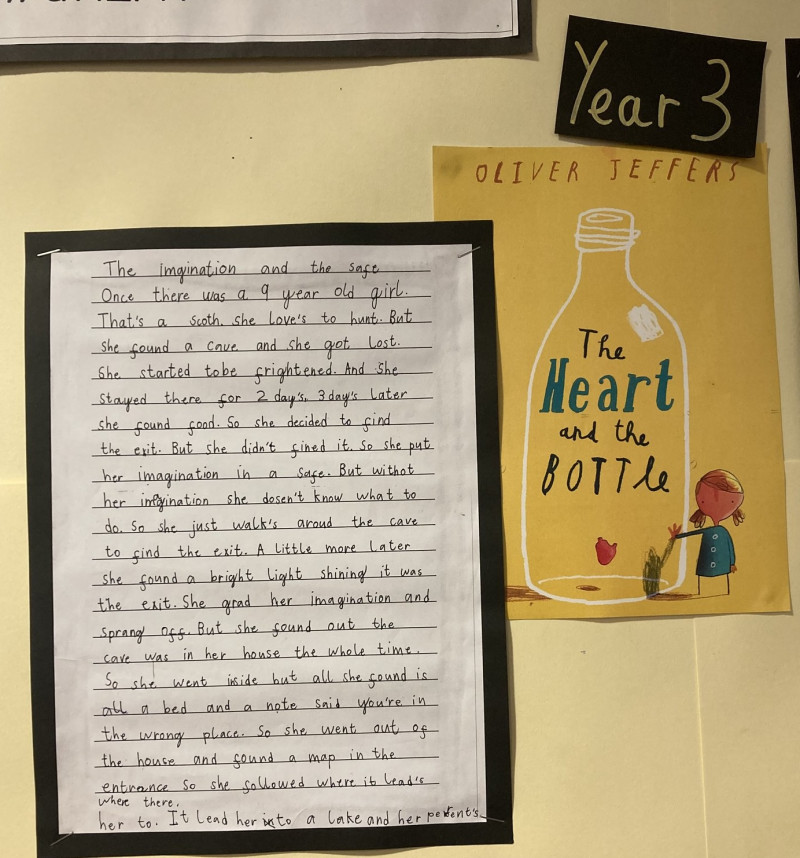 Year 3
OLIVER JEFFERS
The
Heart
and the
BOTTLe
The imgination and the safe
Once there was a 9 year old girl.
That's a scoth. she love's to hunt. But
she found a cave and she got lost.
She started tobe frightened. And she
stayed there for 2 day's, 3 day's Later
she found food. So she decided to find
the exit. But she didn't fined it. So she put
her imagination in a safe. But withot
her imgination she dosen't know what to
do. So she just walk's aroud the cave
to find the exit. A little more Later
she found a bright Light shining it was
the exit. She grad her imagination and
sprang off. But she found out the
cave was in her house the whole time.
So she went inside but all she found is
all a bed and a note said you're in
the wrong place. So she went out of
the house and found a map in the
entrance so she followed where it Lead's
where there.
her to. It Lead her into a Lake and her perent's